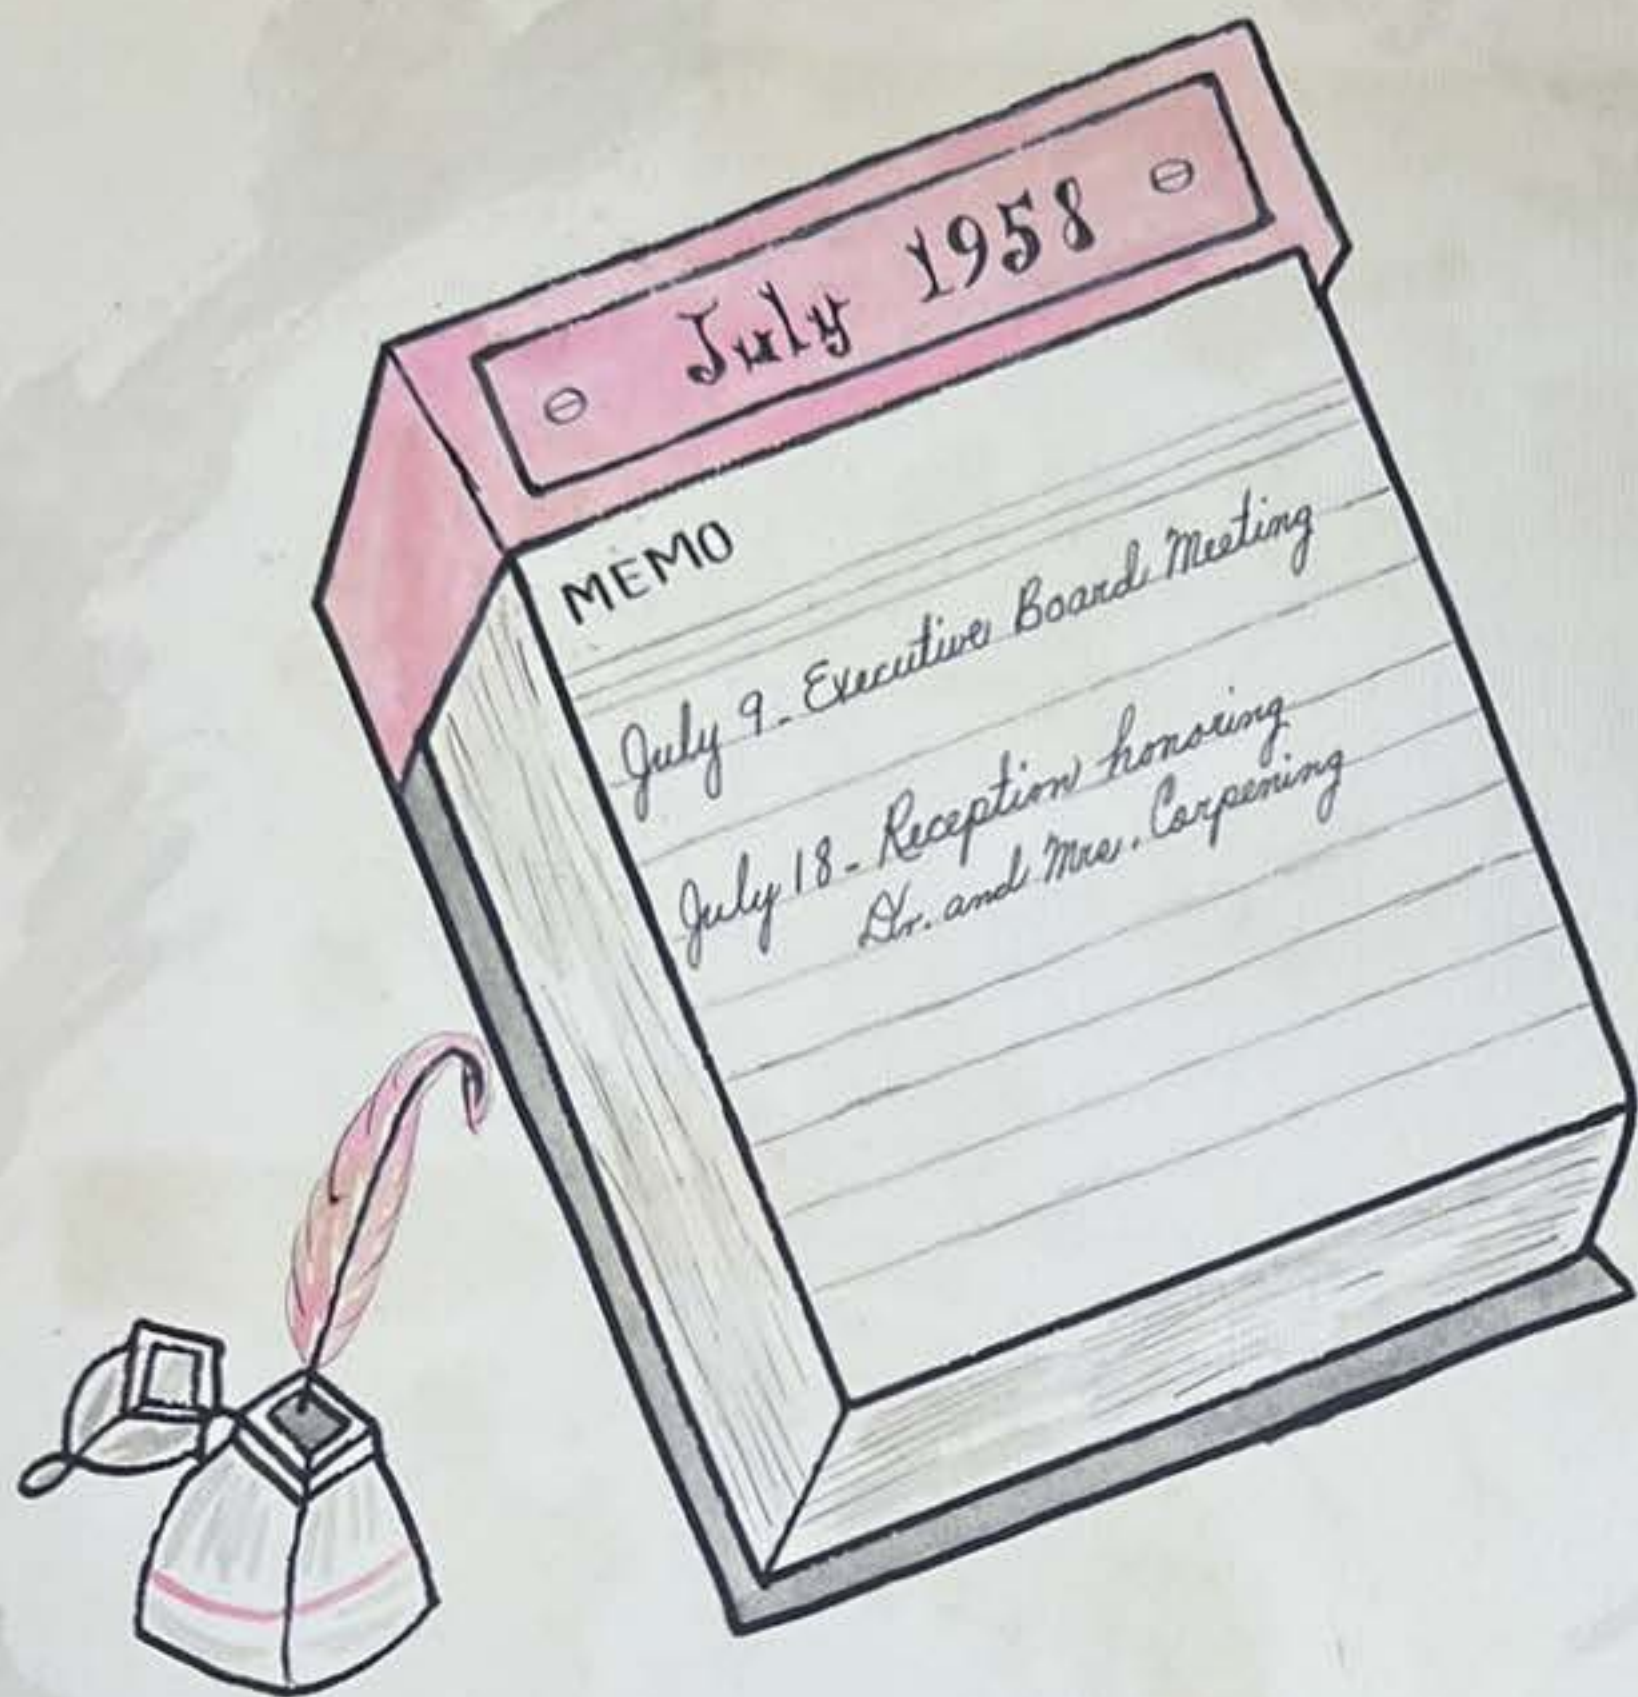 July 1958
MEMO
July 9 - Executive Board Meeting
July 18 - Reception honoring
Dr. and Mrs. Carpening